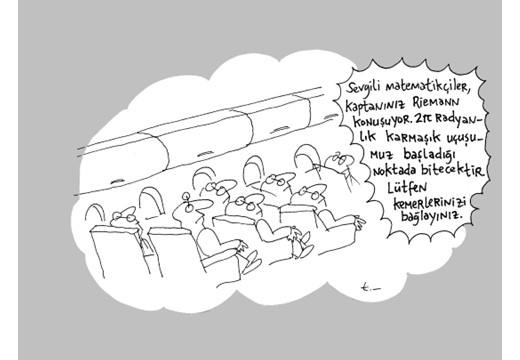 Sevgili matematikçiler,
kaptanınız Riemann
konuşuyor. 2π Radyan-
lık karmaşık uçuşu-
muz başladığı
noktada bitecektir.
Lütfen
kemerlerinizi
bağlayınız.
t.—